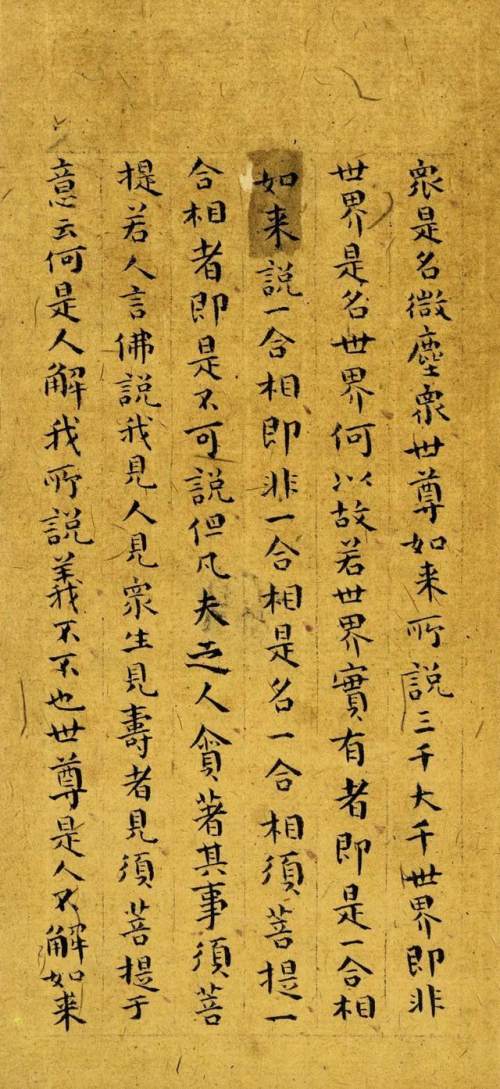 衆是名微塵衆世尊如来所說三千大千世界即非
世界是名世界何以故若世界實有者即是一合相
如来說一合相即非一合相是名一合相須菩提一
合相者即是不可說但凡夫之人貪著其事須菩
提若人言佛說我見人見衆生見壽者見須菩提于
意云何是人解我所說義不不也世尊是人不解如来